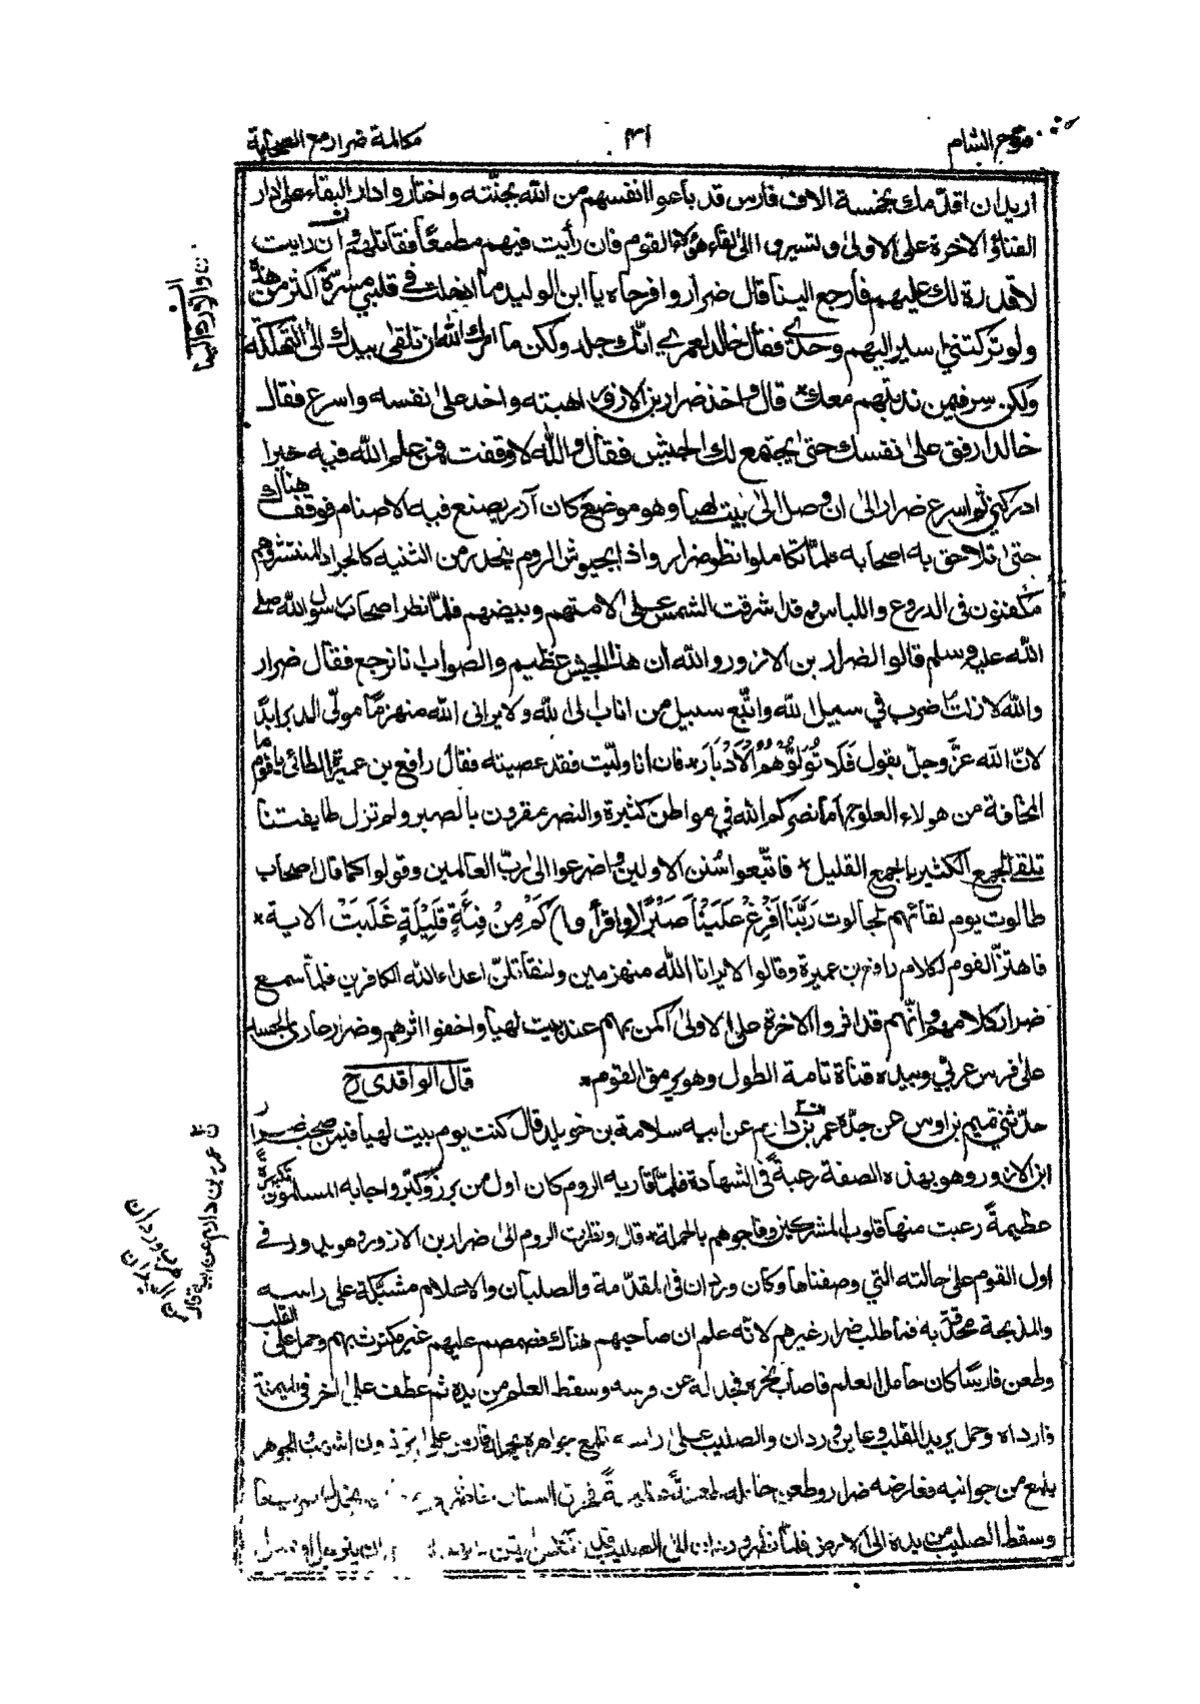 فتوح الشام
٤١
مكالمة ضرار مع الصحابة
اريد ان اقدّمك بخمسة الاف فارس قد باعوا انفسهم من الله بجنّته واختاروا دار البقاء على دار
الفناء والاخرة على الاولى وتسيروا الى لقاء هؤلاء القوم فان رأيت فيهم مطمعاً فقاتلهم وان رايت
لا قدرة لك عليهم فارجع الينا قال ضرار وافرحاه يا ابن الوليد ما ادخلت في قلبي مسرّة اكثر من هذه
ولو تركتني اسير اليهم وحدي فقال خالد لعمري انّك جلد ولكن ما امرك الله ان تلقى بيدك الى التهلكة
ولكن سر فيمن ندبتهم معك قال واخذ ضرار بن الازور اهبته واخذ على نفسه واسرع فقال
خالد ارفق على نفسك حتى يجتمع لك الجيش فقال والله لا وقفت فمن علم الله فيه خيرا
ادركني ثم اسرع ضرار الى ان وصل الى بيت لهيا وهو موضع كان آدر يصنع فيه الاصنام فوقف هناك
حتى تلاحق به اصحابه فلمّا تكاملوا نظر ضرار واذا بجيوش الروم ينحدر من الثنيه كالجراد المنتشر وهم
مكفنون في الدروع واللباس وقد اشرقت الشمس على لامتهم وبيضهم فلمّا نظر اصحاب رسول الله صلى
الله عليه وسلم قالوا لضرار بن الازور والله ان هذا الجيش عظيم والصواب انا نرجع فقال ضرار
والله لا زلت اضرب في سبيل الله واتّبع سبيل من اناب الى الله ولا يراني الله منهزماً مولّي الدبر ابدًا
لانّ الله عزّ وجلّ يقول فَلَا تُوَلُّوْهُمُ الْاَدْبَارَ فان انا ولّيت فقد عصيته فقال رافع بن عميرة الطائي يا قوم ما
المخافة من هولاء العلوج اما نصركم الله في مواطن كثيرة والنصر مقرون بالصبر ولم تزل طايفتنا
تلقى الجمع الكثير بالجمع القليل فاتّبعوا سُنن الاولين واضرعوا الى ربّ العالمين وقولوا كما قال اصحاب
طالوت يوم لقائهم لجالوت رَبَّنَا اَفْرِغْ عَلَيْنَا صَبْرًا واقرأ كَمْ مِنْ فِئَةٍ قَلِيْلَةٍ غَلَبَتْ الاية
فاهتزّ القوم لكلام رافع بن عميرة وقالوا لا يرانا الله منهزمين ولنقاتلنّ اعداء الله الكافرين فلمّا سمع
ضرار كلامهم وانّهم قد اثروا الاخرة على الاولى اكمن بهم عند بيت لهيا واخفوا اثرهم وضرار عاري الجسد
على فرس عربي وبيده قناة تامة الطول وهو يرمق القوم
قال الواقدي رح
حدّثني تميم بن اوس عن جدّه عمر بن دارم عن ابيه سلامة بن خويلد قال كنت يوم بيت لهيا فيمن صحب ضرار
ابن الازور وهو بهذه الصفة رغبةً في الشهادة فلمّا قاربه الروم كان اول من برز وكبّر واجابه المسلمون تكبيرة
عظيمةً رعبت منها قلوب المشركين وفاجوهم بالحملة قال ونظرت الروم الى ضرار بن الازور وهو في
اول القوم على حالته التي وصفناها وكان وردان في المقدّمة والصلبان والاعلام مشتبكة على راسه
به فما طلب ضرار غيرهم لانّه علم ان صاحبهم هناك فصمم عليهم غير مكترث بهم وحمل على القلب
وطعن فارسًا كان حامل العلم فاصاب نحره فجدله عن فرسه وسقط العلم من يده ثم عطف على اخر في الميمنة
فارداه وحمل يريد القلب وعاين وردان والصليب على راسه
يلمع من جوانبه فعارضه ضرار وطعن حامله طعنةً
وسقط الصليب من يده الى الارض فلمّا نظر وردان الى الصليب
عمر بن دارم عن ابيه قال